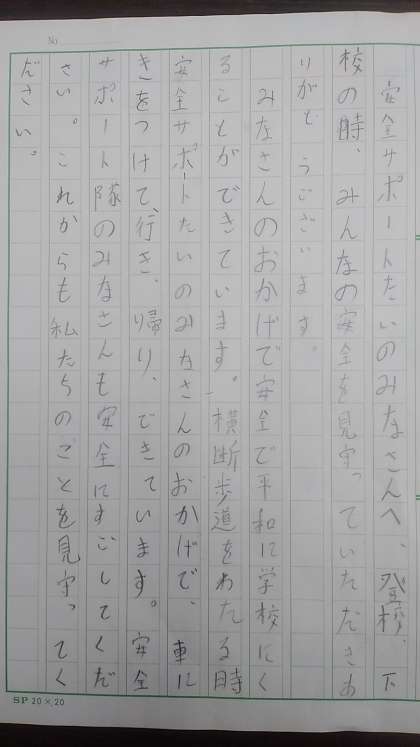 No.
安全サポートたいのみなさんへ、登校、下
校の時、みんなの安全を見守っていただきあ
りがとうございます。
みなさんのおかげで安全で平和に学校にく
ることができています。横断歩道をわたる時
安全サポートたいのみなさんのおかげで、車に
きをつけて、行き、帰り、できています。安全
サポート隊のみなさんも安全にすごしてくだ
さい。これからも私たちのごとを見守ってく
ださい。
SP 20×20